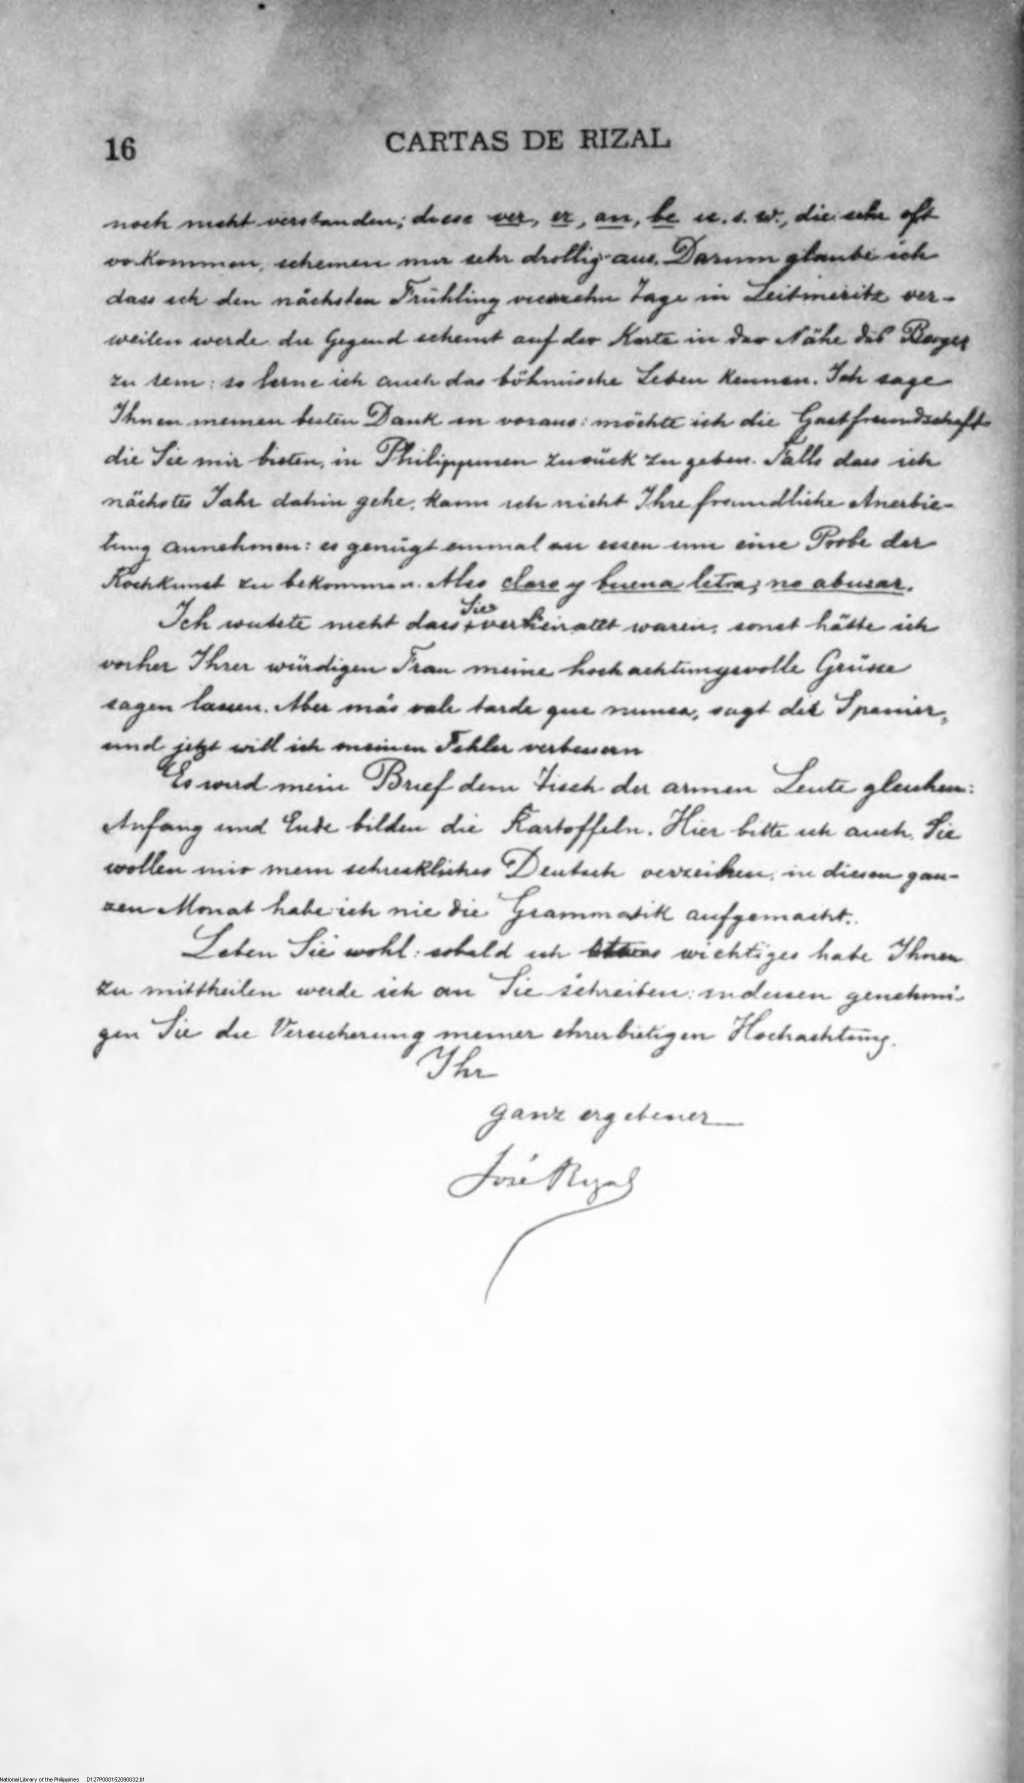 16
CARTAS DE RIZAL
noch nicht verstanden; diese ver, er, an, be u. s. w., die sehr oft
vorkommen, scheinen mir sehr drollig aus. Darum glaube ich
dass ich den nächsten Frühling vierzehn Tage in Leitmeritz ver-
weilen werde die Gegend scheint auf der Karte in der Nähe des Berges
zu sein: so lerne ich auch das böhmische Leben kennen. Ich sage
Ihnen meinen besten Dank in voraus: möchte ich die Gastfreundschaft
die Sie mir bieten, in Philippinen zurück zu geben. Falls dass ich
nächstes Jahr dahin gehe, kann ich nicht Ihre freundliche Anerbie-
tung annehmen: es genügt einmal zu essen um eine Probe der
Kochkunst zu bekommen. Also claro y buena letra; no abusar.
Ich wusste nicht dass Sie verheiratet waren, sonst hätte ich
vorher Ihrer würdigen Frau meine hochachtungsvolle Grüsse
sagen lassen. Aber más vale tarde que nunca, sagt der Spanier,
und jetzt will ich meinen Fehler verbessern
Es wird mein Brief dem Tisch der armen Leute gleichen:
Anfang und Ende bilden die Kartoffeln. Hier bitte ich auch, Sie
wollen mir mein schreckliches Deutsch verzeihen, in diesen gan-
zen Monat habe ich nie die Grammatik aufgemacht.
Leben Sie wohl: sobald ich etwas wichtiges habe Ihnen
zu mittheilen werde ich an Sie schreiben: indessen genehmi-
gen Sie die Versicherung meiner ehrerbietigen Hochachtung.
Ihr
ganz ergebener
José Rizal
National Library of the Philippines